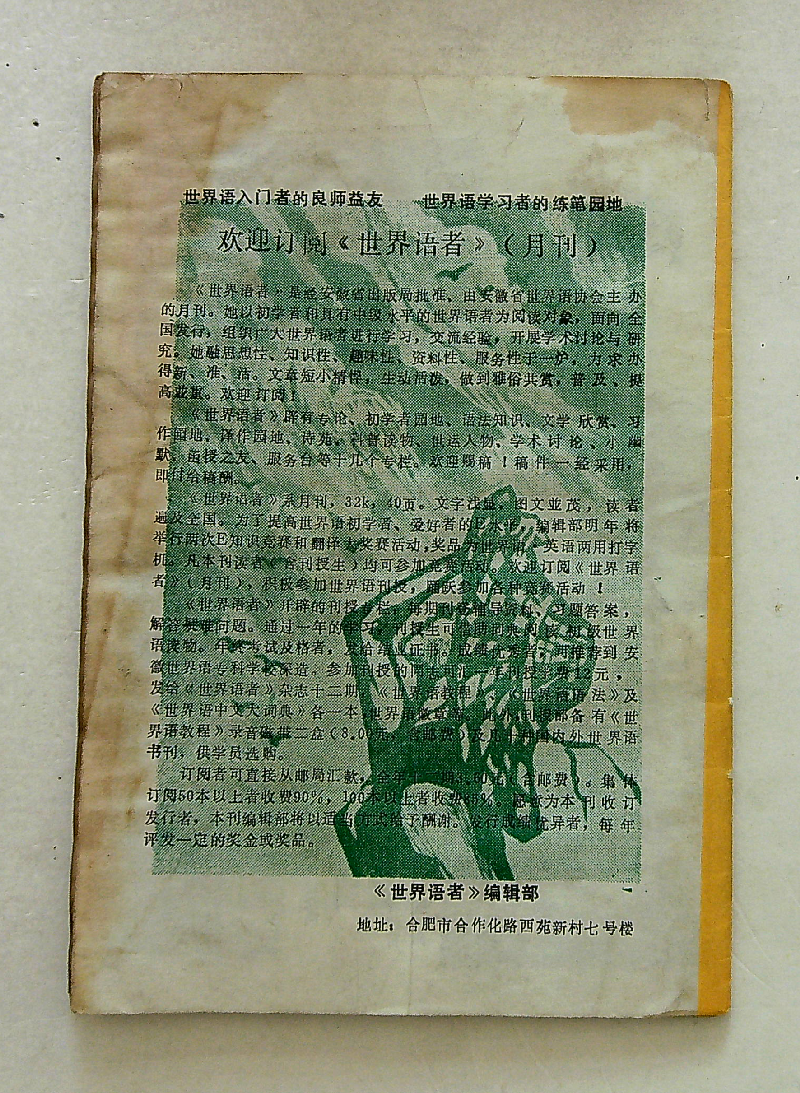 世界语入门者的良师益友 世界语学习者的练笔园地
欢迎订阅《世界语者》(月刊)
《世界语者》是经安徽省出版局批准、由安徽省世界语协会主办
的月刊。她以初学者和具有中级水平的世界语者为阅读对象,面向全
国发行;组织广大世界语者进行学习,交流经验,开展学术讨论与研
究。她融思想性、知识性、趣味性、资料性、服务性于一炉,力求办
得新、准、活。文章短小精悍,生动活泼,做到雅俗共赏,普及、提
高并重。欢迎订阅!
《世界语者》辟有专论、初学者园地、语法知识、文学欣赏、习
作园地、译作园地、诗苑、科普读物、世运人物、学术讨论、小幽
默、函授之友、服务台等十几个专栏。欢迎赐稿!稿件一经采用,
即付给稿酬。
《世界语者》系月刊,32k,40页。文字浅显,图文并茂,读者
遍及全国。为了提高世界语初学者、爱好者的E水平,编辑部明年将
举行两次E知识竞赛和翻译有奖赛活动,奖品为世界语、英语两用打字
机。凡本刊读者(含刊授生)均可参加竞赛活动。欢迎订阅《世界语
者》(月刊),积极参加世界语刊授,踊跃参加各种竞赛活动!
《世界语者》开辟的刊授专栏,每期刊有辅导资料、习题答案,
解答疑难问题。通过一年的学习,刊授生可借助词典阅读初级世界
语读物。年终考试及格者,发给结业证书。成绩优秀者,可推荐到安
徽世界语专科学校深造。参加刊授的同志可汇一年刊授学费12元,
发给《世界语者》杂志十二期、《世界语教程》、《世界语语法》及
《世界语中文大词典》各一本,世界语徽章 部备有《世
界语教程》录音磁带二盒(8.00元,含邮费)及几十种国内外世界语
书刊,供学员选购。
订阅者可直接从邮局汇款,全年十二期 元(含邮费)。集体
订阅50本以上者收费90%,100本以上者收费 愿意为本刊收订
发行者,本刊编辑部将以适当方式给予酬谢。发行成绩优异者,每年
评发一定的奖金或奖品。
《世界语者》编辑部
地址:合肥市合作化路西苑新村七号楼